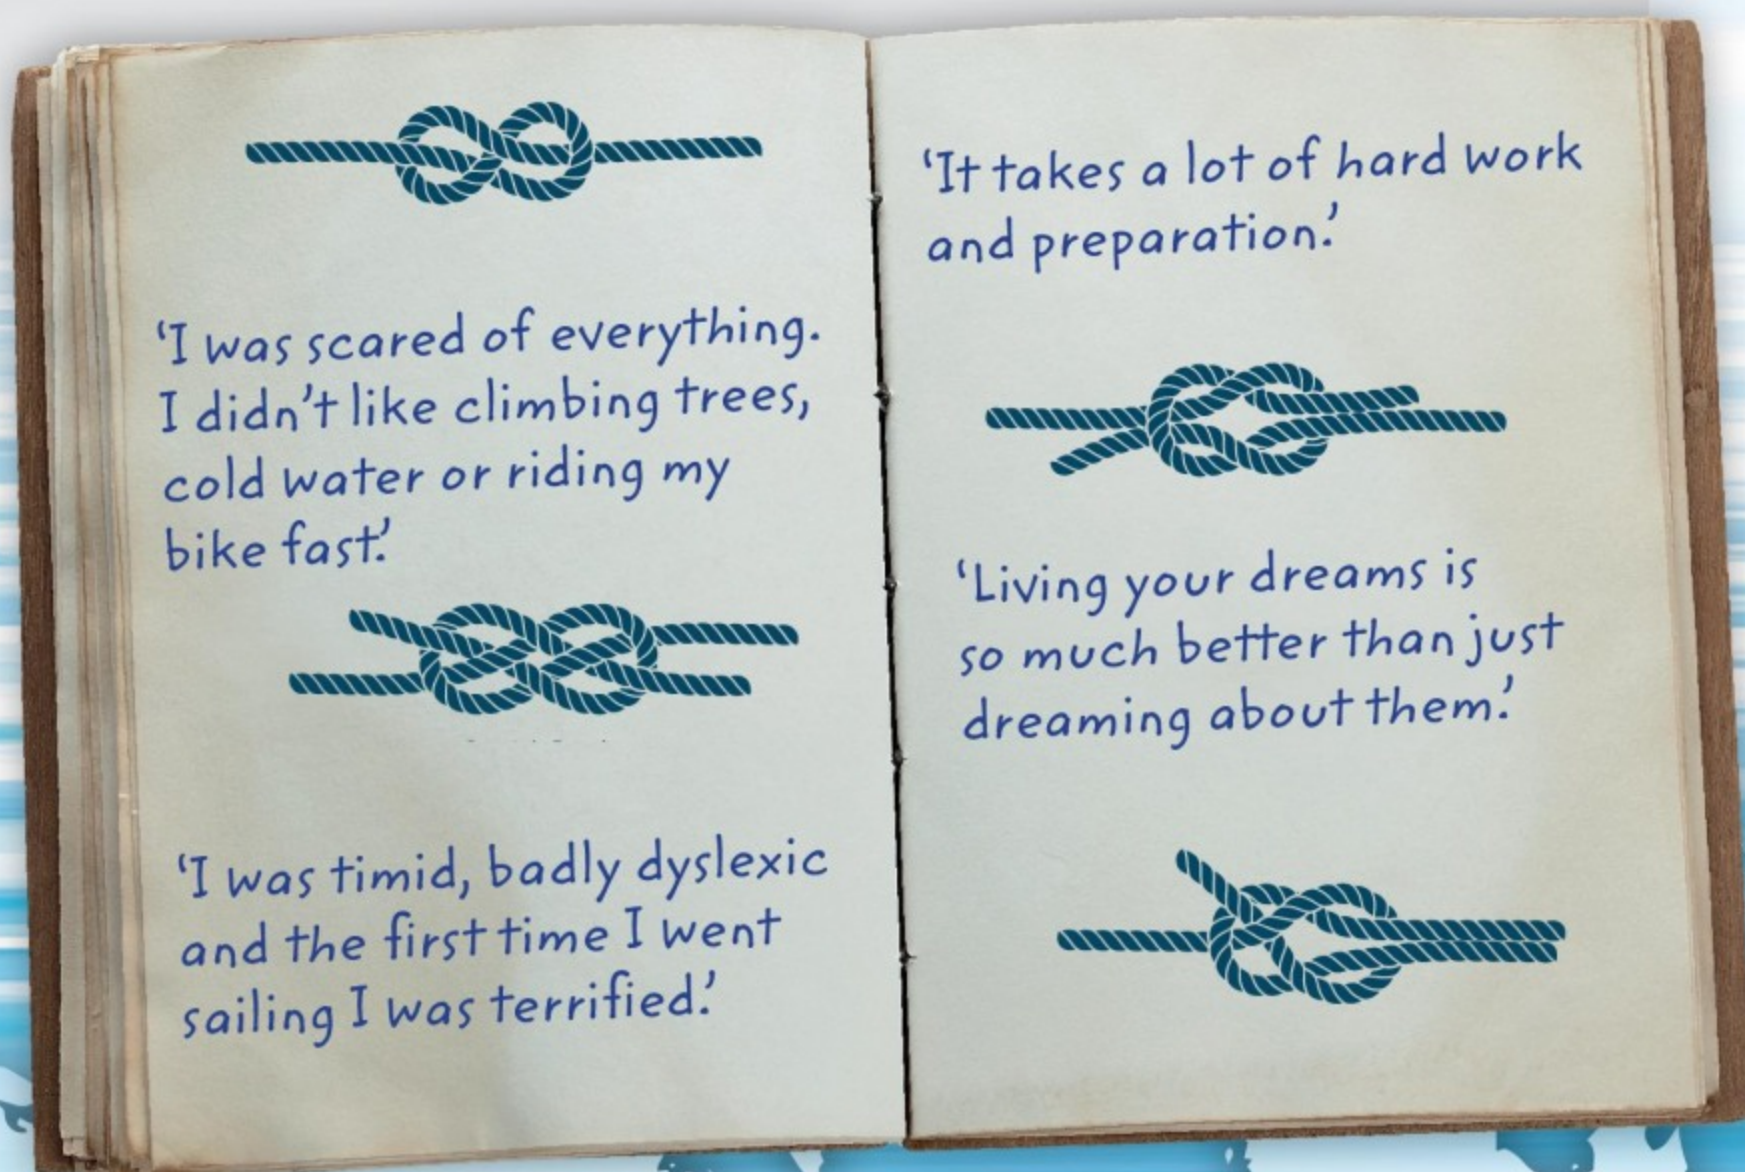 ‘I was scared of everything.
I didn’t like climbing trees,
cold water or riding my
bike fast.’
‘I was timid, badly dyslexic
and the first time I went
sailing I was terrified.’
‘It takes a lot of hard work
and preparation.’
‘Living your dreams is
so much better than just
dreaming about them.’